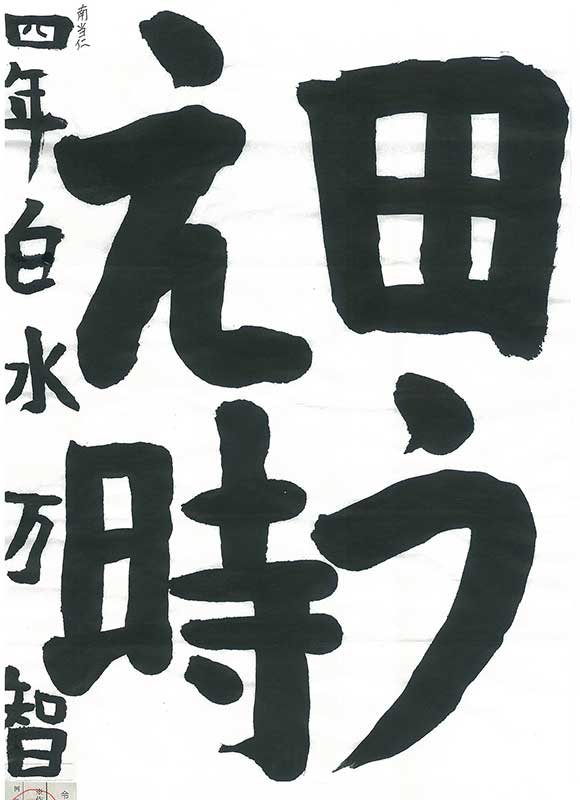 田う
え時
四年白水万智
南当仁